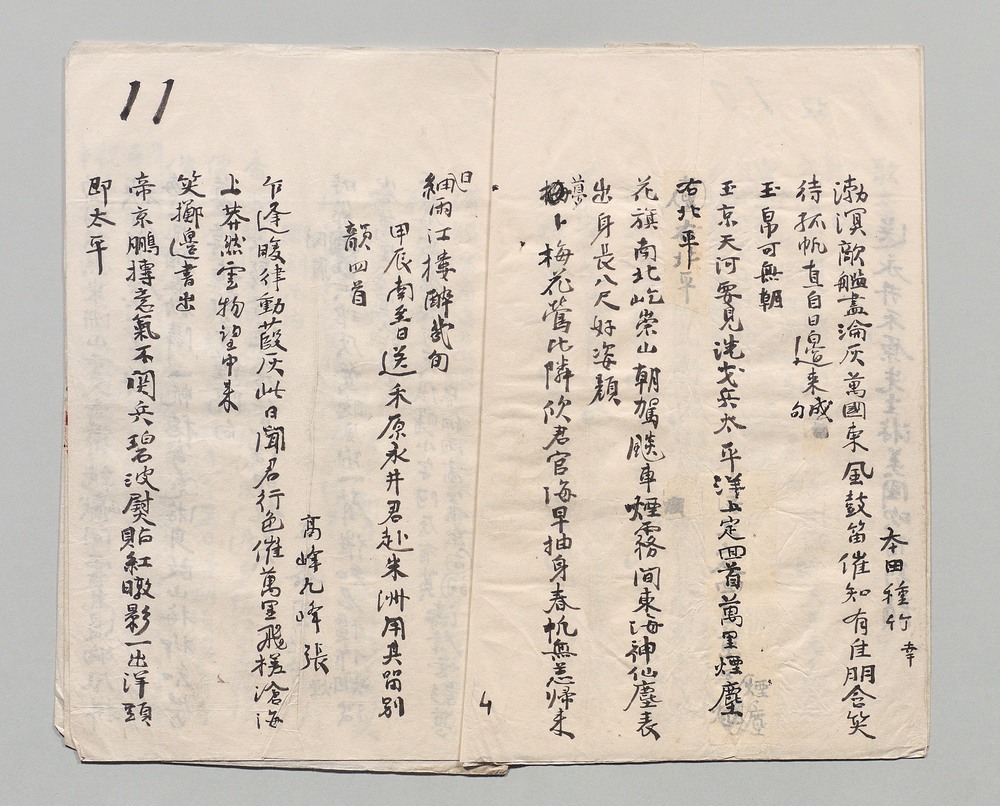 本田種竹 幸
渤溟敵艦盡淪灰萬國東風鼓笛催知有佳朋含笑
待孤帆直自日邊来 成句
玉帛可無朝
玉京天河要見洗戈兵太平洋上定回首萬里煙塵
右北平
花旗南北屹崇山朝駕颷車煙霧間東海神仙塵表
出身長八尺好姿顔
夢卜梅花鶯比隣欣君官海早抽身春帆無恙帰来
日細雨江楼酔幾旬
甲辰南至日送禾原永井君赴米洲用其留別
韻四首
高峰九峰 張
乍逢暖律動葭灰此日聞君行色催萬里飛槎滄海
上莽然雲物望中来
笑擲邊書出
帝京鵬摶意氣不関兵碧波熨貼紅暾影一出洋頭
即太平
11
4